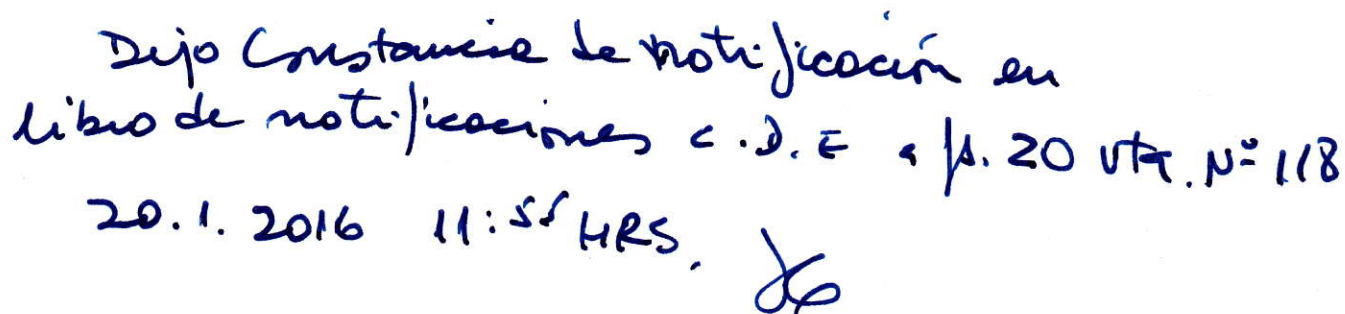 Dejo Constancia de notificación en
libro de notificaciones C.D.E a fs. 20 vta. Nº 118
20.1.2016 11:55 HRS.